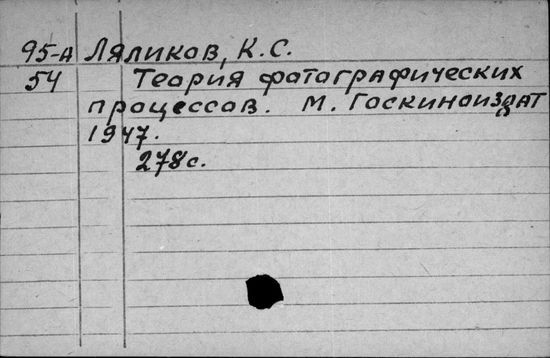 95-А Ляликов, К.С.
54 Теория фотографических
процессов. М. Госкиноиздат
1947.
278с.